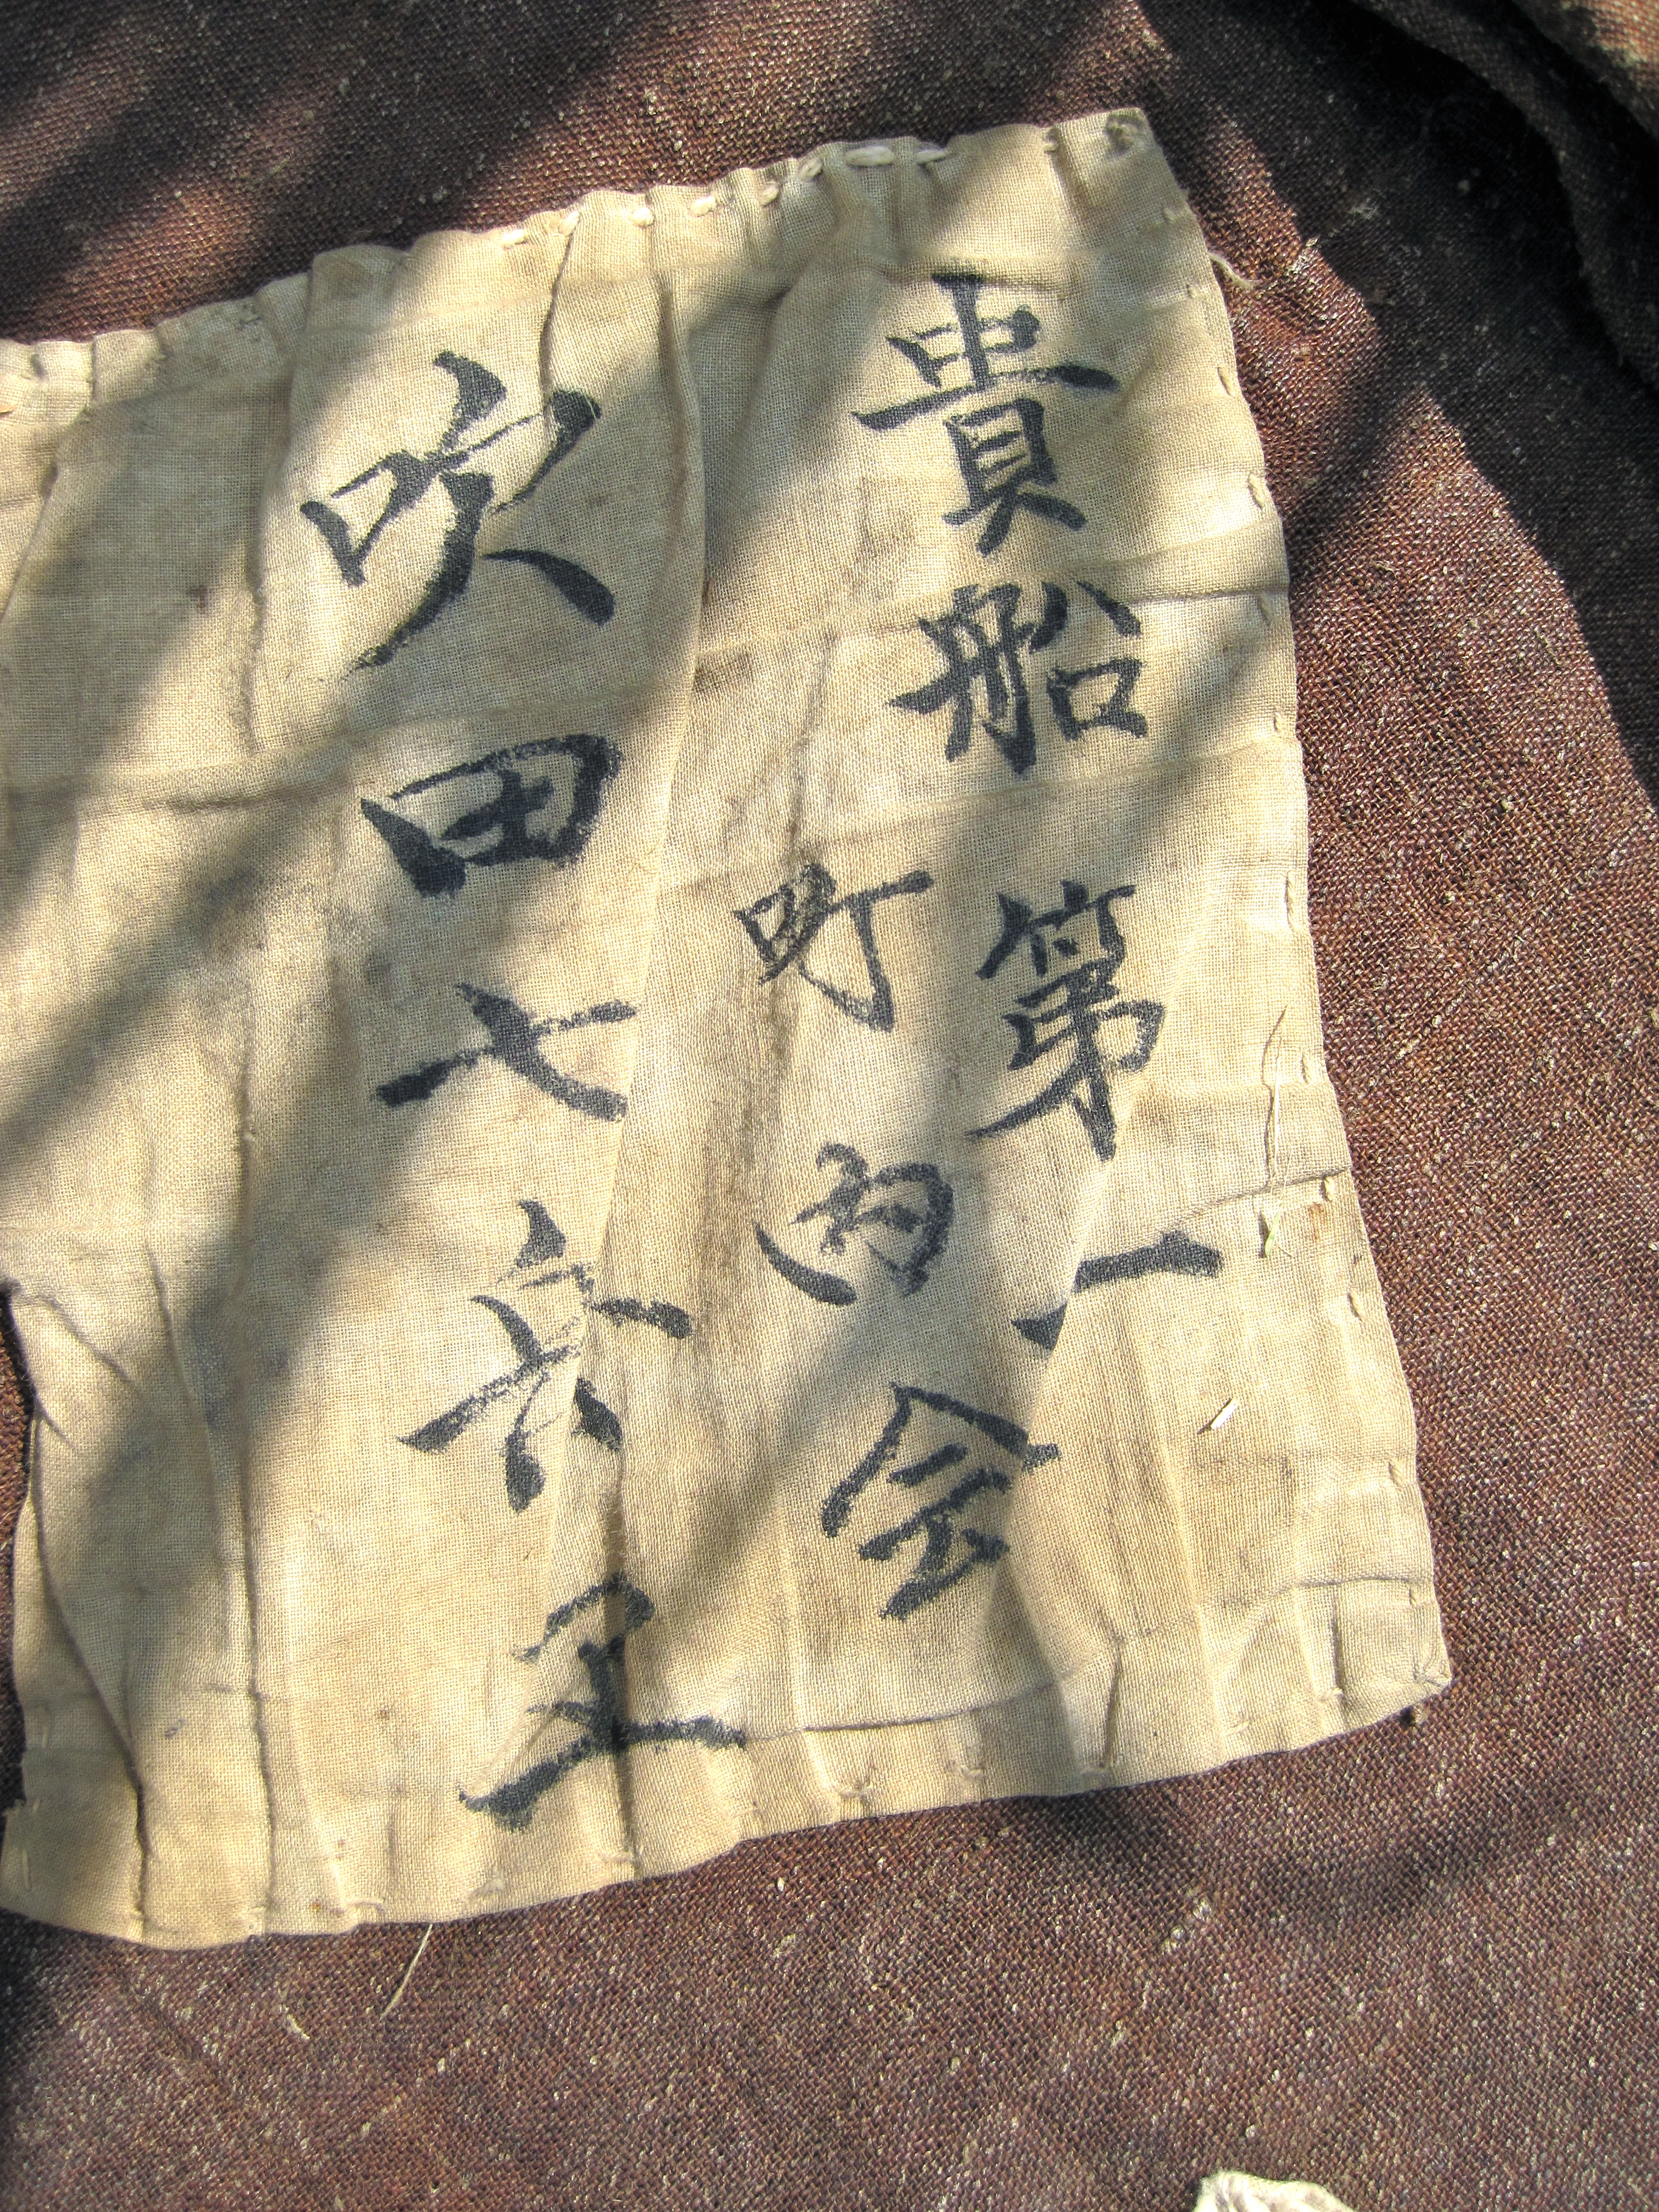 貴船第一
町内会
吹田七六五